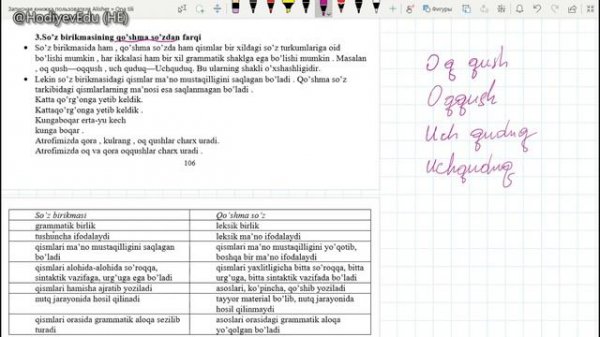 Записная книжка пользователя Alisher » Ona tili
@HodiyevEdu (HE)
3.So‘z birikmasining qo‘shma so‘zdan farqi
• So‘z birikmasida ham , qo‘shma so‘zda ham qismlar bir xildagi so‘z turkumlariga oid
bo‘lishi mumkin , har ikkalasi ham bir xil grammatik shaklga ega bo‘lishi mumkin . Masalan
, oq qush—oqqush , uch quduq—Uchquduq. Bu ularning shakli o‘xshashligidir.
• Lekin so‘z birikmasidagi qismlar ma’no mustaqilligini saqlagan bo‘ladi . Qo‘shma so‘z
tarkibidagi qismlarlarning ma’nosi esa saqlanmagan bo‘ladi .
Katta qo‘rg‘onga yetib keldik.
Kattaqo‘rg‘onga yetib keldik .
Kungaboqar erta-yu kech
kunga boqar .
Atrofimizda qora , kulrang , oq qushlar charx uradi .
Atrofimizda oq va qora oqqushlar charx uradi .
106
Oq qush
Oqqush
Uch quduq
Uchquduq
So‘z birikmasi Qo‘shma so‘z
grammatik birlik leksik birlik
tushuncha ifodalaydi leksik ma’no ifodalaydi
qismlari ma’no mustaqilligini saqlagan qismlari ma’no mustaqilligini yo‘qotib,
bo‘ladi boshqa bir ma’no ifodalaydi
qismlari alohida-alohida so‘roqqa, qismlari yaxlitligicha bitta so‘roqqa, bitta
sintaktik vazifaga, urg‘uga ega bo‘ladi urg‘uga, bitta sintaktik vazifada bo‘ladi
qismlari hamisha ajratib yoziladi asoslari, ko‘pincha, qo‘shib yoziladi
nutq jarayonida hosil qilinadi tayyor material bo‘lib, nutq jarayonida
hosil qilinmaydi
qismlari orasida grammatik aloqa sezilib asoslari orasidagi grammatik aloqa
turadi yo‘qolgan bo‘ladi